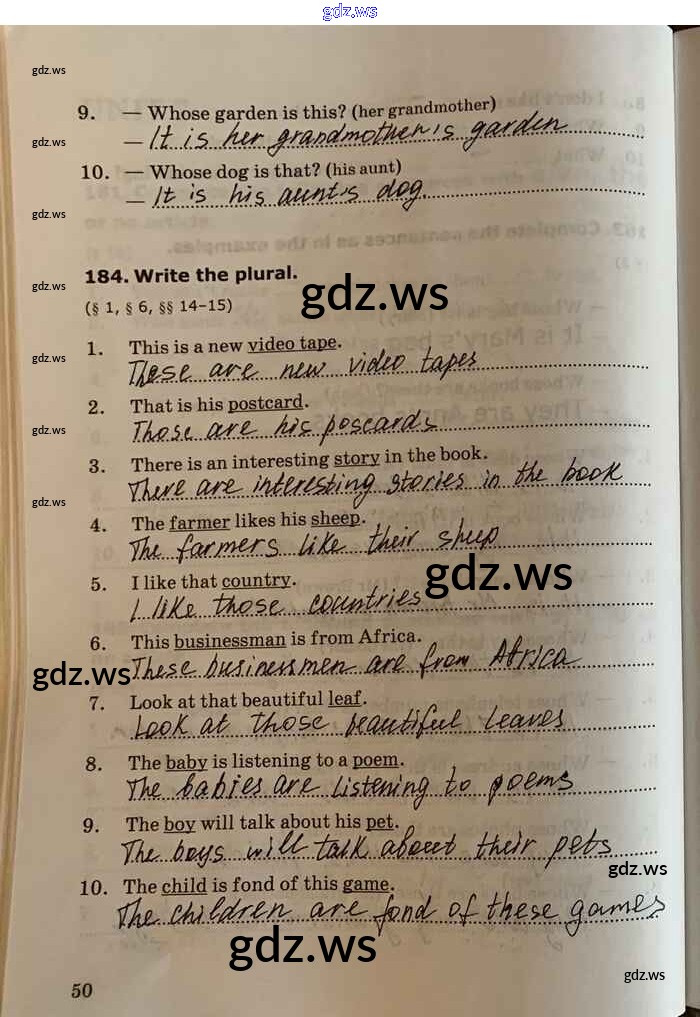 gdz.ws
gdz.ws
9. — Whose garden is this? (her grandmother)
— It is her grandmother's garden
gdz.ws
10. — Whose dog is that? (his aunt)
— It is his aunt's dog.
gdz.ws
184. Write the plural.
gdz.ws
gdz.ws
(§ 1, § 6, §§ 14–15)
1. This is a new video tape.
gdz.ws
These are new video tapes
2. That is his postcard.
gdz.ws
Those are his poscards
3. There is an interesting story in the book.
There are interesting stories in the book
gdz.ws
4. The farmer likes his sheep.
The farmers like their sheep
gdz.ws
5. I like that country.
I like those countries
6. This businessman is from Africa.
gdz.ws
These businessmen are from Africa
7. Look at that beautiful leaf.
Look at those beautiful leaves
8. The baby is listening to a poem.
The babies are listening to poems
9. The boy will talk about his pet.
The boys will talk about their pets
gdz.ws
10. The child is fond of this game.
The children are fond of these games
gdz.ws
gdz.ws
50